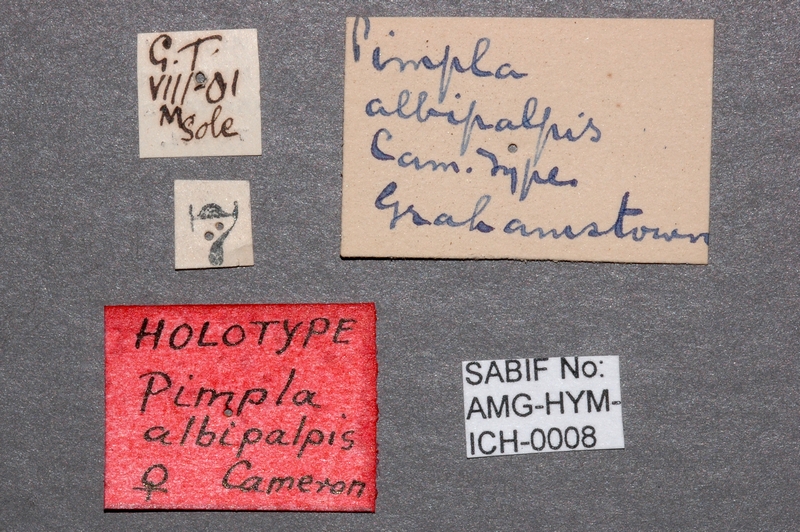 G.T.
VIII-01
M Sole
Pimpla
albipalpis
Cam. Type.
Grahamstown
HOLOTYPE
Pimpla
albipalpis
♀ Cameron
SABIF No:
AMG-HYM-
ICH-0008